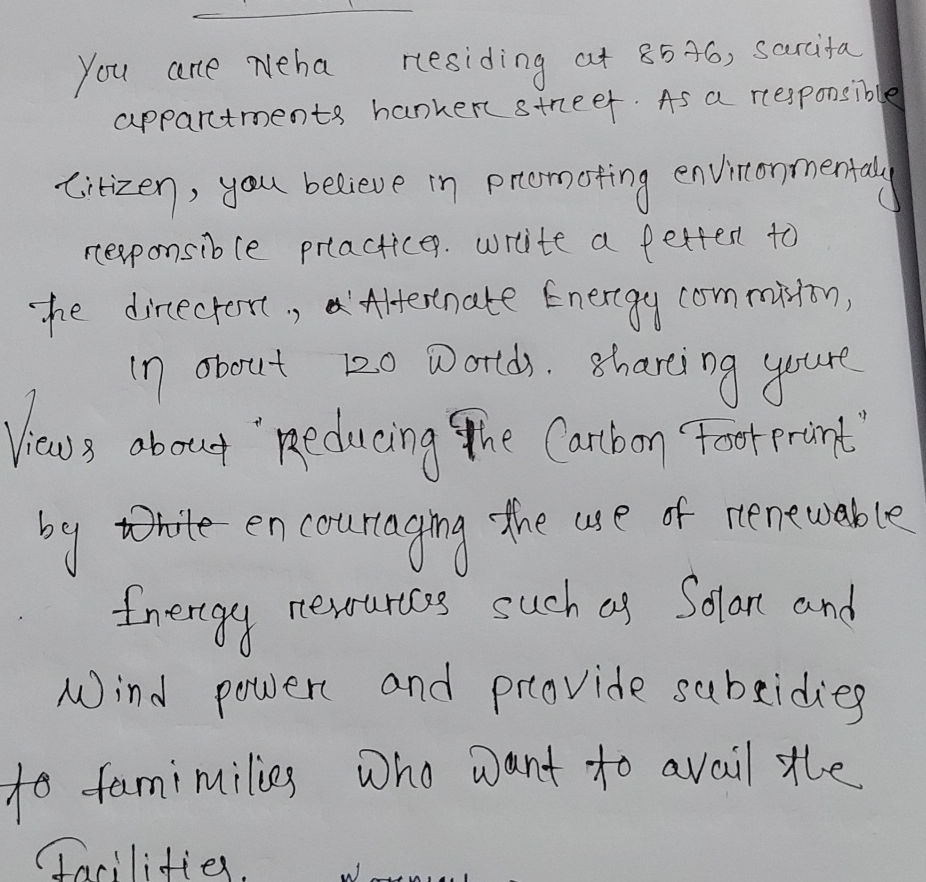 You are Neha residing at 8576, sarcita
appartments hanker street. As a responsible
Citizen, you believe in promoting environmentaly
responsible practices. write a letter to
the director, Alternate Energy commision,
in about 120 Words. sharing your
Views about "Reducing The Carbon Footprint"
by white encouraging the use of renewable
Energy resources such as Solar and
Wind power and provide subsidies
to famimilies who want to avail the
Facilities.